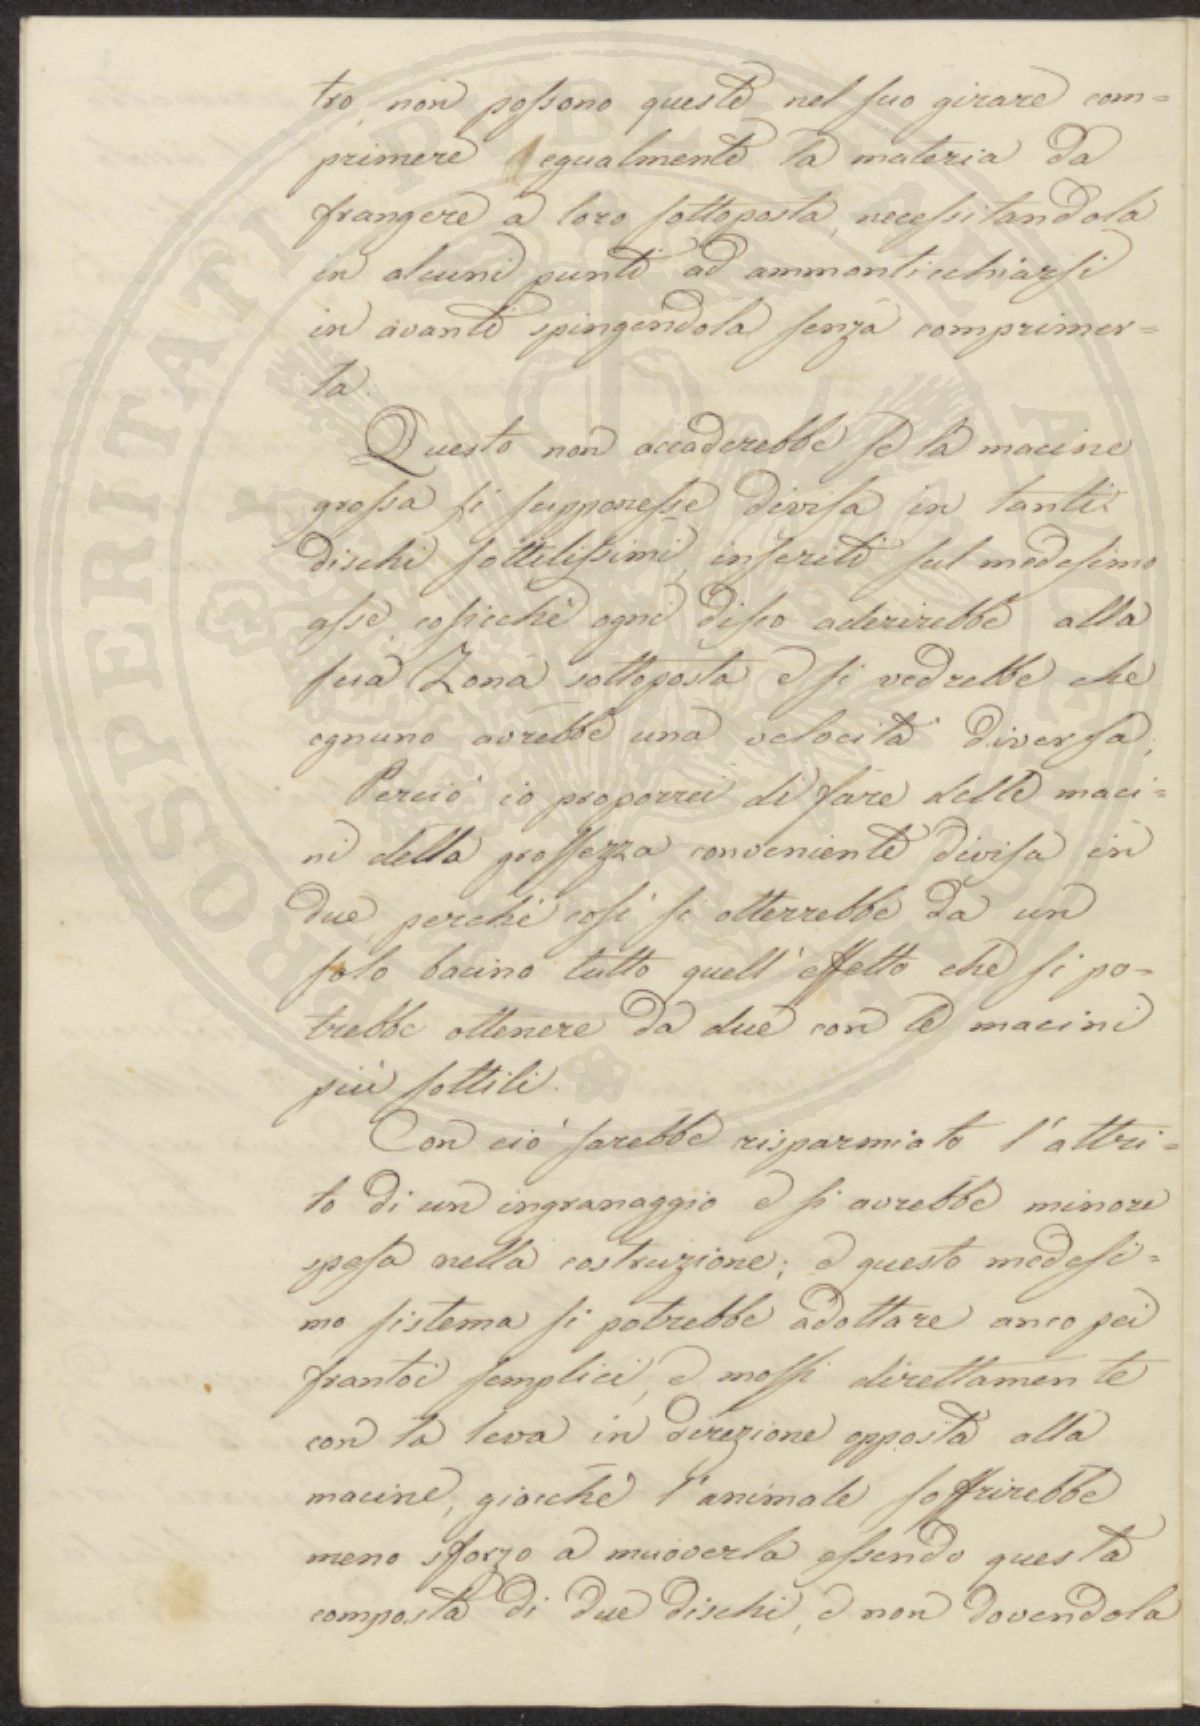 tro, non possono queste nel suo girare com=
primere egualmente la materia da
frangere a loro sottoposta, necessitandola
in alcuni punti ad ammonticchiarsi
in avanti spingendola senza comprimer=
la.
Questo non accaderebbe se la macine
grossa si supponesse divisa in tanti
dischi sottilissimi, inseriti sul medesimo
asse, cosicchè ogni disco aderirebbe alla
sua Zona sottoposta e si vedrebbe che
ognuno avrebbe una velocità diversa;
Perciò io proporrei di fare delle maci=
ni della grossezza conveniente divisa in
due, perchè così si otterrebbe da un
solo bacino tutto quell'effetto che si po=
trebbe ottenere da due con le macini
più sottili.
Con ciò sarebbe risparmiato l'attri=
to di un ingranaggio e si avrebbe minore
spesa nella costruzione; e questo medesi=
mo sistema si potrebbe adottare anco pei
frantoi semplici, e mossi direttamente
con la leva in direzione opposta alla
macine, giacchè l'animale soffrirebbe
meno sforzo a muoverla essendo questa
composta di due dischi, e non dovendola
PROSPERITATI PUBLICAE AUGENDAE